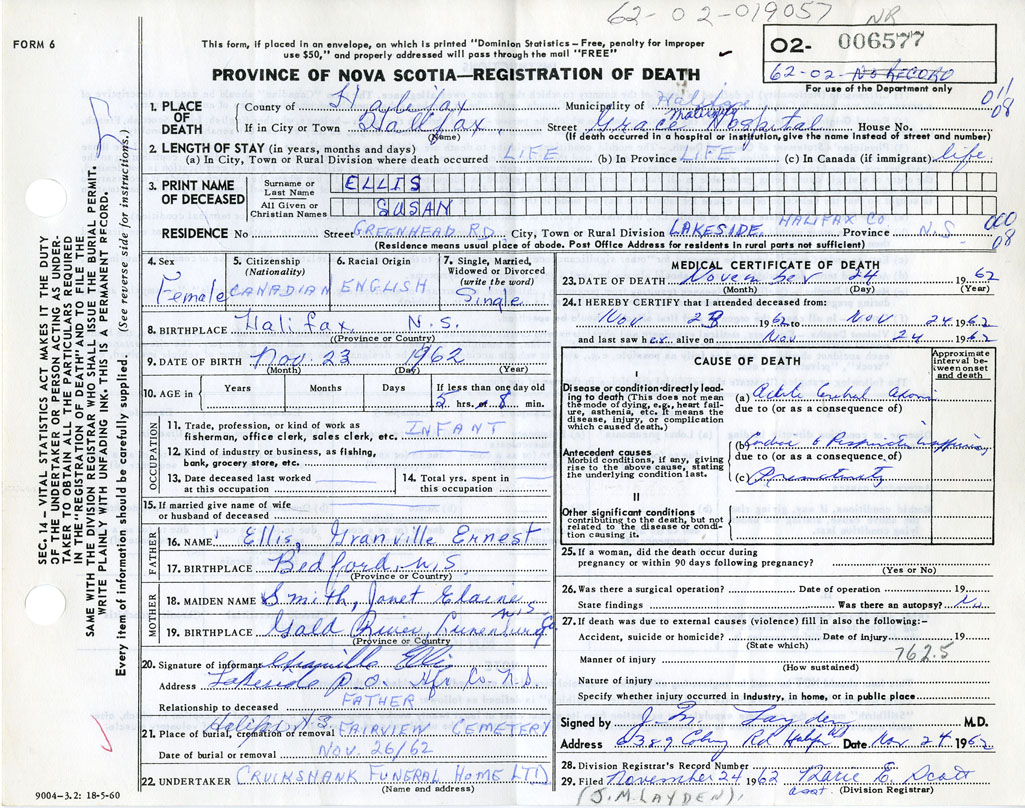 62-02-019057 NR
FORM 6
This form, if placed in an envelope, on which is printed "Dominion Statistics - Free, penalty for improper
use $50," and properly addressed will pass through the mail "FREE"
02- 006577
PROVINCE OF NOVA SCOTIA—REGISTRATION OF DEATH
62-02- NO RECORD
For use of the Department only
011
08
1. PLACE OF DEATH
County of Halifax Municipality of Halifax
If in City or Town Halifax, Street Grace Maternity Hospital House No.
(Name) (If death occurred in a hospital or institution, give the name instead of street and number)
2. LENGTH OF STAY (in years, months and days)
(a) In City, Town or Rural Division where death occurred LIFE (b) In Province LIFE (c) In Canada (if immigrant) life.
3. PRINT NAME OF DECEASED
Surname or Last Name ELLIS
All Given or Christian Names SUSAN
RESIDENCE No Street GREENHEAD RD. City, Town or Rural Division LAKESIDE HALIFAX CO Province N.S. 000
08
(Residence means usual place of abode. Post Office Address for residents in rural parts not sufficient)
4. Sex Female
5. Citizenship (Nationality) CANADIAN
6. Racial Origin ENGLISH
7. Single, Married, Widowed or Divorced (write the word) Single
8. BIRTHPLACE Halifax N.S.
(Province or Country)
9. DATE OF BIRTH Nov. 23 1962
(Month) (Day) (Year)
10. AGE in Years Months Days If less than one day old
5 hrs. or 8 min.
OCCUPATION
11. Trade, profession, or kind of work as
fisherman, office clerk, sales clerk, etc. INFANT
12. Kind of industry or business, as fishing,
bank, grocery store, etc.
13. Date deceased last worked
at this occupation
14. Total yrs. spent in
this occupation
15. If married give name of wife
or husband of deceased
FATHER
16. NAME Ellis, Granville Ernest
17. BIRTHPLACE Bedford, N.S.
(Province or Country)
MOTHER
18. MAIDEN NAME Smith, Janet Elaine
19. BIRTHPLACE Gold River, Lunenburg Co. N.S.
(Province or Country)
20. Signature of informant Granville Ellis
Address Lakeside P.O. Hfx. Co. N.S.
Relationship to deceased FATHER
21. Place of burial, cremation or removal Halifax N.S. FAIRVIEW CEMETERY
Date of burial or removal NOV. 26/62
22. UNDERTAKER CRUIKSHANK FUNERAL HOME LTD
(Name and address)
9004-3.2: 18-5-60
MEDICAL CERTIFICATE OF DEATH
23. DATE OF DEATH November 24 1962
(Month) (Day) (Year)
24. I HEREBY CERTIFY that I attended deceased from:
Nov 23 1962 to Nov 24 1962
and last saw her alive on Nov 24 1962
CAUSE OF DEATH
Approximate interval between onset and death
I
Disease or condition directly leading to death (This does not mean the mode of dying, e.g., heart failure, asthenia, etc. It means the disease, injury, or complication which caused death.)
(a)
due to (or as a consequence of)
Antecedent causes
Morbid conditions, if any, giving rise to the above cause, stating the underlying condition last.
(b)
due to (or as a consequence of)
(c) Prematurity
II
Other significant conditions
contributing to the death, but not related to the disease or condition causing it.
25. If a woman, did the death occur during
pregnancy or within 90 days following pregnancy?
(Yes or No)
26. Was there a surgical operation? Date of operation 19
State findings Was there an autopsy? No
27. If death was due to external causes (violence) fill in also the following:-
Accident, suicide or homicide? Date of injury 19
(State which)
Manner of injury 762.5
(How sustained)
Nature of injury
Specify whether injury occurred in industry, in home, or in public place
Signed by J. M. Layden M.D.
Address 6389 Coburg Rd Halifax Date Nov. 24 1962
28. Division Registrar's Record Number
29. Filed November 24 1962 Marie E. Scott
asst. (Division Registrar)
(J.M. LAYDEN),
SEC. 14 - VITAL STATISTICS ACT MAKES IT THE DUTY
OF THE UNDERTAKER OR PERSON ACTING AS UNDER-
TAKER TO OBTAIN ALL THE PARTICULARS REQUIRED
IN THE "REGISTRATION OF DEATH" AND TO FILE THE
SAME WITH THE DIVISION REGISTRAR WHO SHALL ISSUE THE BURIAL PERMIT.
WRITE PLAINLY WITH UNFADING INK. THIS IS A PERMANENT RECORD.
Every item of information should be carefully supplied. (See reverse side for instructions.)